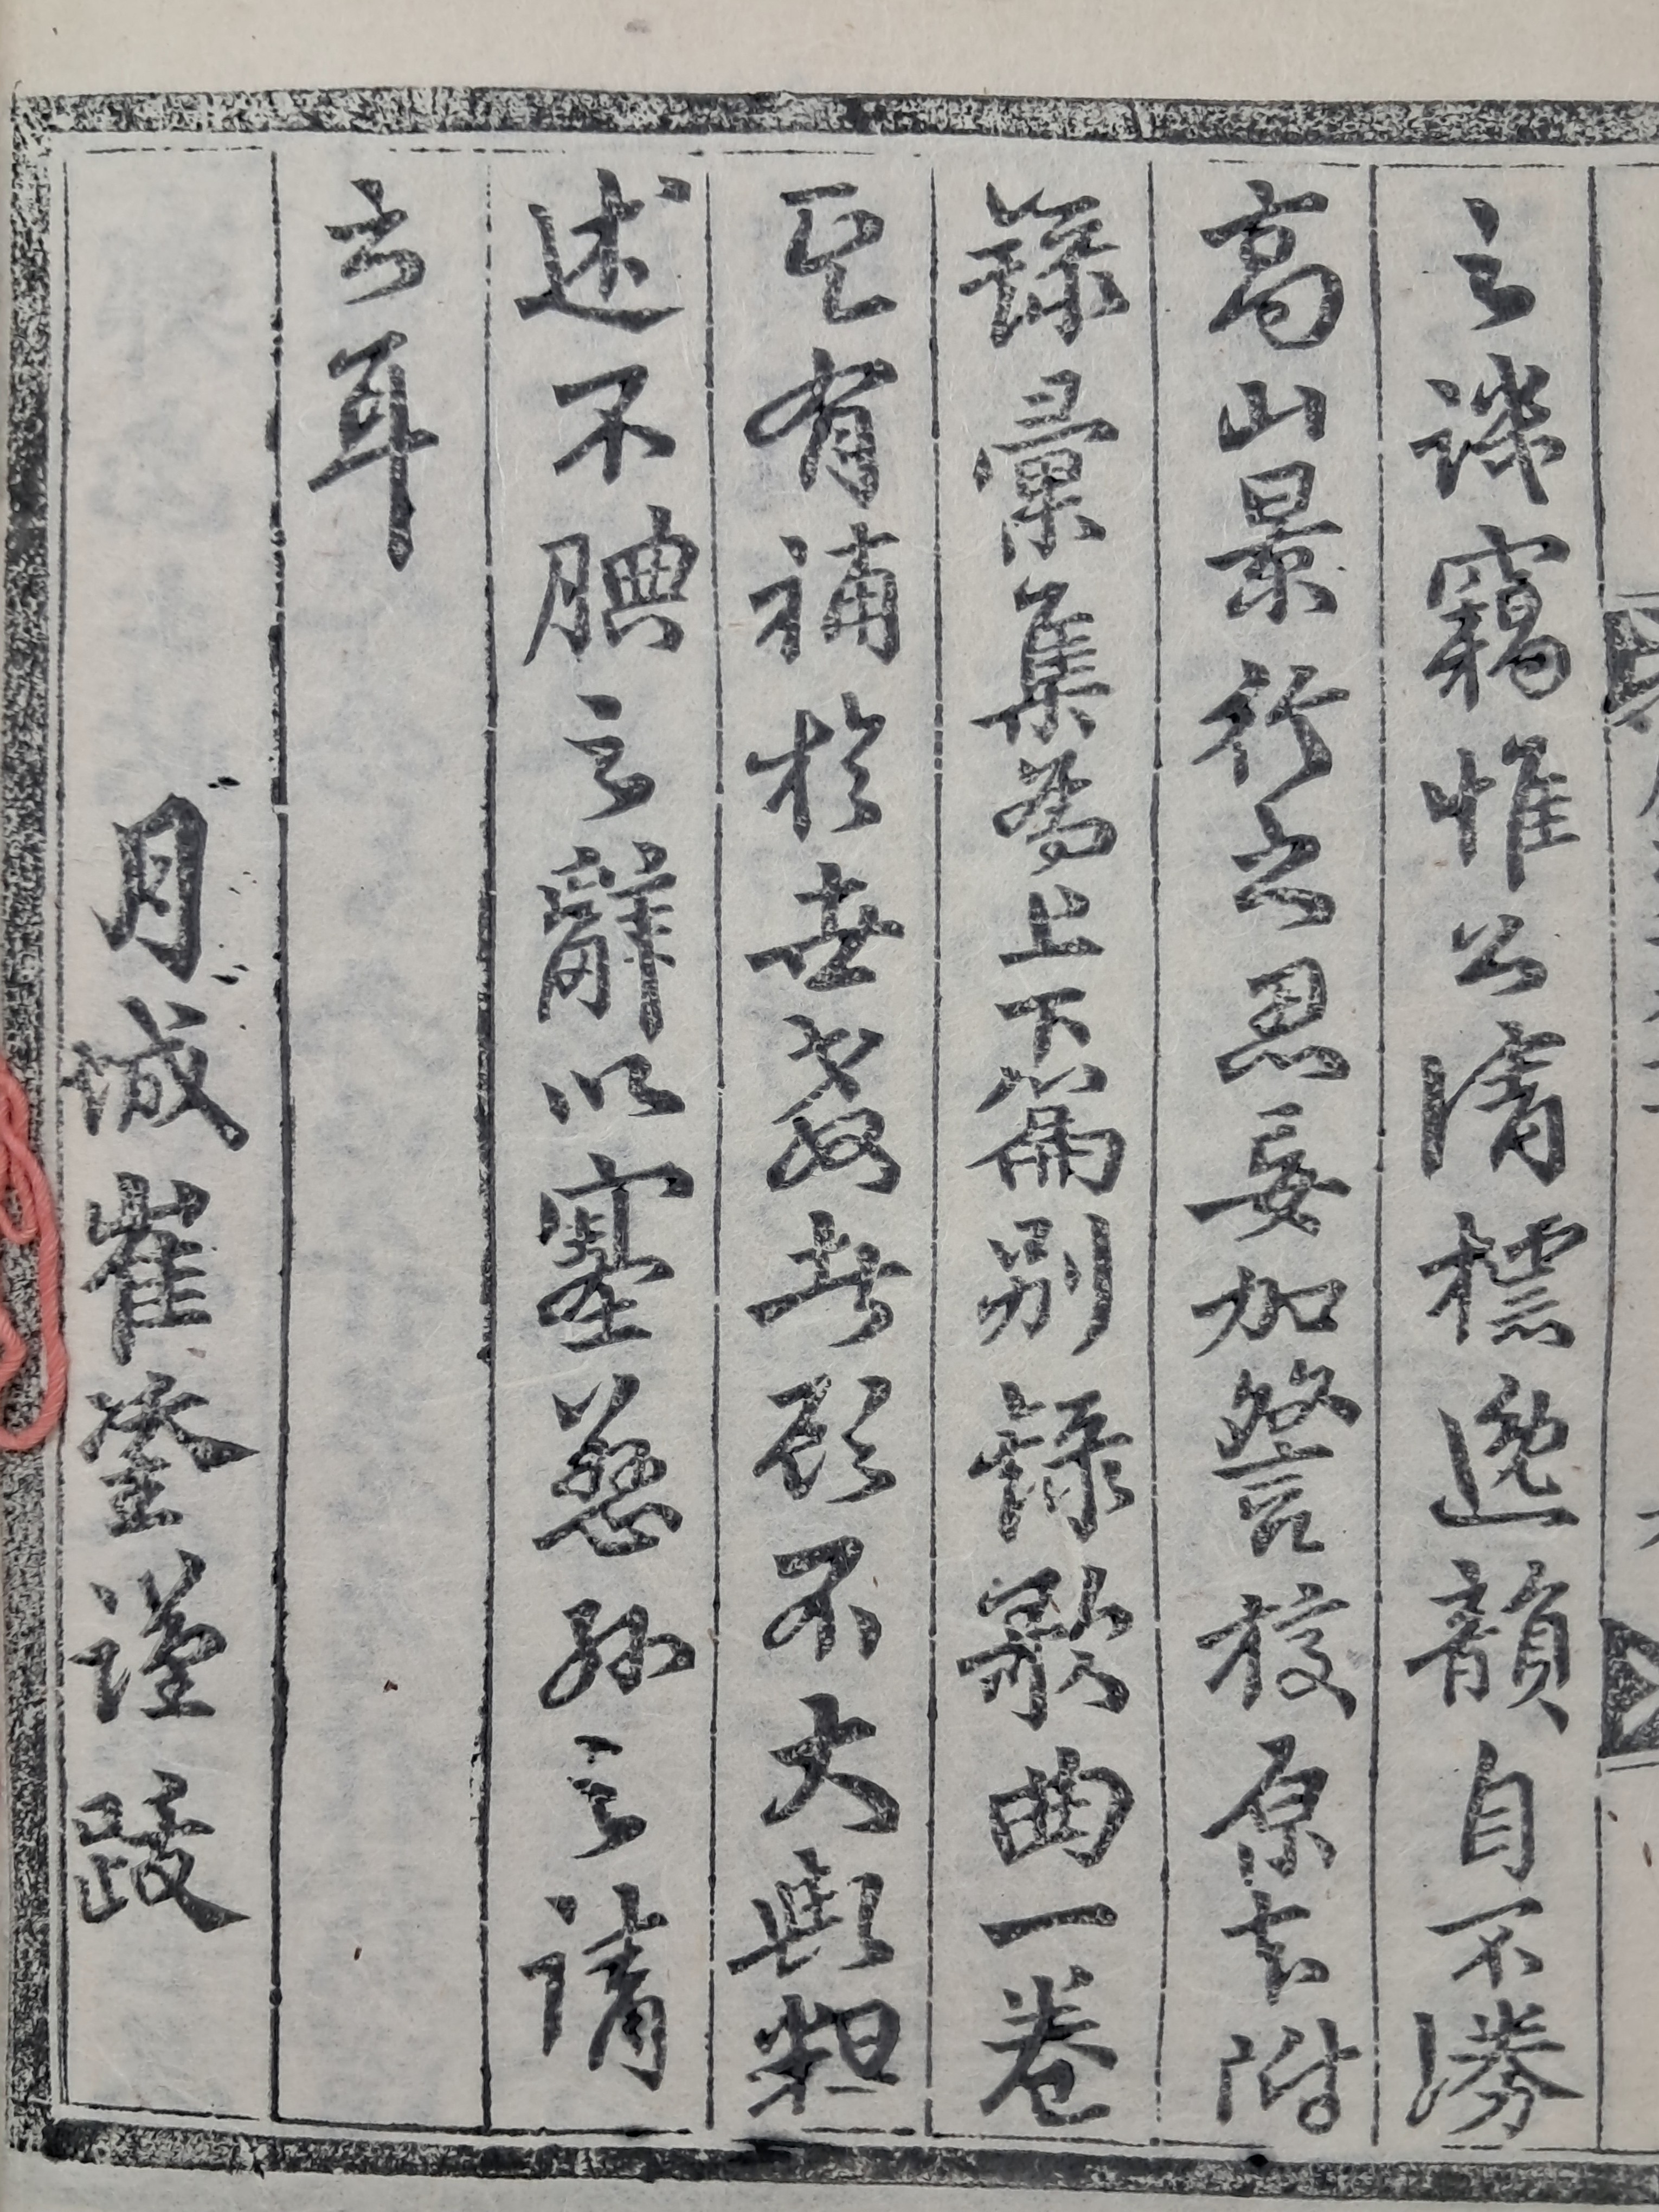 之誅竊惟公清標逸韻自不勝
高山景行之思妄加讐校原本附
錄彙集為上下篇別錄歌曲一卷
其有補於世教者顧不大歟粗
述不腆之辭以塞慈孫之請
云耳
月城崔謹跋